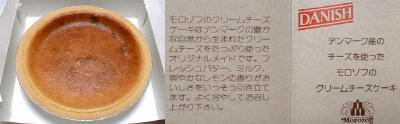 モロゾフのクリームチーズ
ケーキはデンマークの豊か
な自然から生まれたクリー
ムチーズをたっぷり使った
オリジナルメイドです。フ
レッシュバター、ミルク、
爽やかなレモンの香りがお
いしさをいっそう引き立て
ます。よく冷やしてお召し
上がり下さい。
DANISH
デンマーク産の
チーズを使った
モロゾフの
クリームチーズケーキ
Morozoff